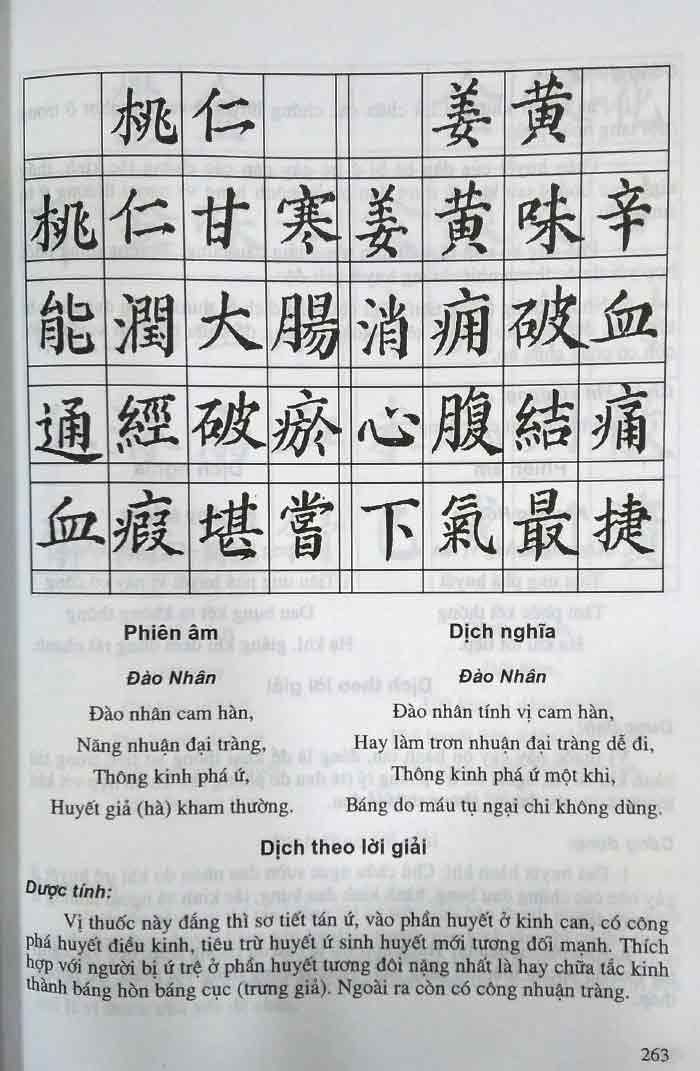 桃仁 姜黃
桃仁甘寒 姜黃味辛
能潤大腸 消痈破血
通經破瘀 心腹結痛
血瘕堪嘗 下氣最捷
Phiên âm
Đào Nhân
Đào nhân cam hàn,
Năng nhuận đại tràng,
Thông kinh phá ứ,
Huyết giả (hà) kham thường.
Dịch nghĩa
Đào Nhân
Đào nhân tính vị cam hàn,
Hay làm trơn nhuận đại tràng dễ đi,
Thông kinh phá ứ một khi,
Báng do máu tụ ngại chi không dùng.
Dịch theo lời giải
Dược tính:
Vị thuốc này đắng thì sơ tiết tán ứ, vào phần huyết ở kinh can, có công
phá huyết điều kinh, tiêu trừ huyết ứ sinh huyết mới tương đối mạnh. Thích
hợp với người bị ứ trệ ở phần huyết tương đôi nặng nhất là hay chữa tắc kinh
thành báng hòn báng cục (trưng giả). Ngoài ra còn có công nhuận tràng.
263